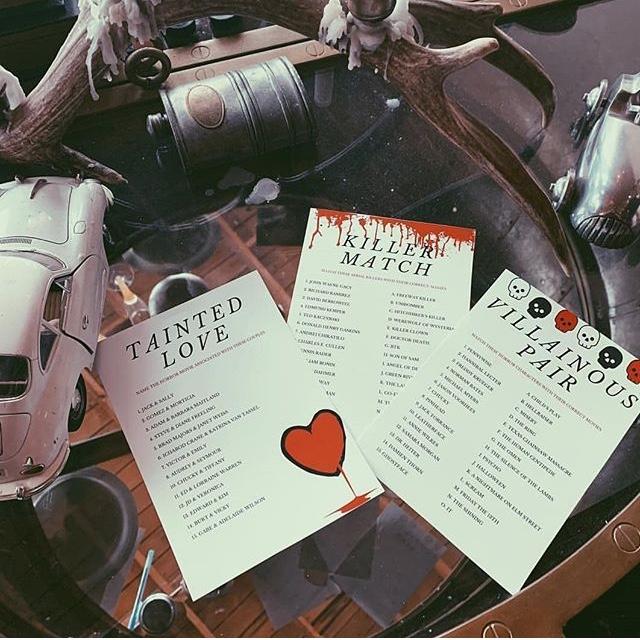 TAINTED
LOVE
NAME THE HORROR MOVIE ASSOCIATED WITH THESE COUPLES
1. JACK & SALLY
2. GOMEZ & MORTICIA
3. ADAM & BARBARA MAITLAND
4. STEVE & DIANE FREELING
5. BRAD MAJORS & JANET WEISS
6. ICHABOD CRANE & KATRINA VAN TASSEL
7. VICTOR & EMILY
8. AUDREY & SEYMOUR
10. CHUCKY & TIFFANY
11. ED & LORRAINE WARREN
12. JD & VERONICA
13. EDWARD & KIM
14. BURT & VICKY
15. GABE & ADELAIDE WILSON
KILLER
MATCH
MATCH THESE SERIAL KILLERS WITH THEIR CORRECT NAMES
1. JOHN WAYNE GACY
2. RICHARD RAMIREZ
3. DAVID BERKOWITZ
4. EDMUND KEMPER
5. TED KACZYNSKI
6. DONALD HENRY GASKINS
ANDREI CHIKATILO
CHARLES E. CULLEN
NNIS RADER
IAM BONIN
DAHMER
WAY
MAN
A. FREEWAY KILLER
B. UNIBOMBER
C. HITCHHIKER'S KILLER
D. WEREWOLF OF WYSTERIA
E. KILLER CLOWN
F. DOCTOR DEATH
G. BTK
H. SON OF SAM
I. ANGEL OF DE
J. GREEN RIV
K. THE LA
L. CO-E
VILLAINOUS
PAIR
MATCH THESE HORROR CHARACTERS WITH THEIR CORRECT MOVIES
1. PENNYWISE
2. HANNIBAL LECTER
3. FREDDY KRUEGER
4. NORMAN BATES
5. MICHAEL MYERS
6. JASON VOORHEES
7. CHUCKY
8. PINHEAD
9. JACK TORRANCE
10. LEATHERFACE
11. ANNIE WILKES
12. SAMARA MORGAN
13. DR. HEITER
14. DAMIEN THORN
15. GHOSTFACE
A. CHILD'S PLAY
B. HELLRAISER
C. MISERY
D. THE RING
E. TEXAS CHAINSAW MASSACRE
F. THE OMEN
G. THE HUMAN CENTIPEDE
H. THE SILENCE OF THE LAMBS
I. PSYCHO
J. HALLOWEEN
K. A NIGHTMARE ON ELM STREET
L. SCREAM
M. FRIDAY THE 13TH
N. THE SHINING
O. IT